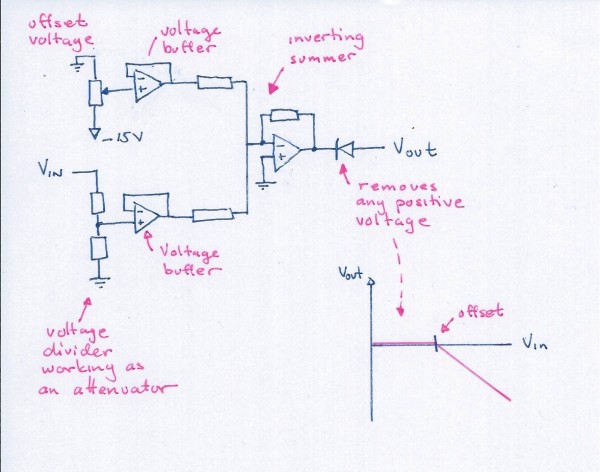 offset
voltage
voltage
buffer
inverting
summer
-15V
VIN
Vout
removes
any positive
voltage
Voltage
buffer
voltage
divider
working as
an attenuator
Vout
offset
Vin
-
+
-
+
-
+